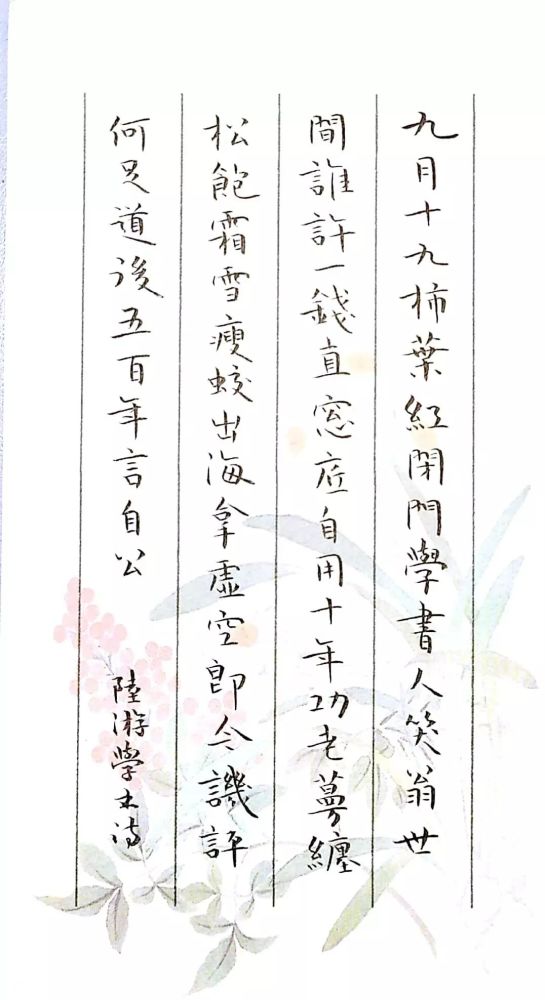 九月十九柿葉紅閉門學書人笑翁世
間誰許一錢直窓底自用十年功老蔓纏
松飽霜雪瘦蛟出海拿虛空即今譏評
何足道後五百年言自公
陸游學書詩